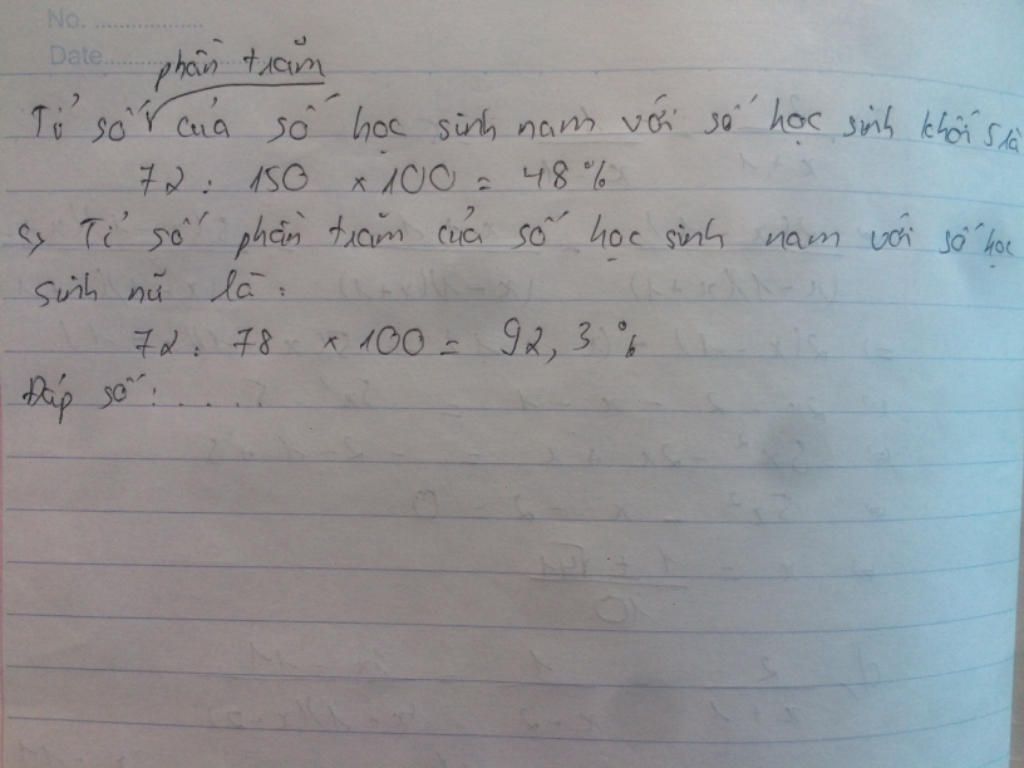 No. ..................
Date..................
phần trăm
Tỉ số của số học sinh nam với số học sinh khối 5 là
72 : 150 x 100 = 48 %
c, Tỉ số phần trăm của số học sinh nam với số học
sinh nữ là :
72 : 78 x 100 = 92,3 %
Đáp số : . . . .